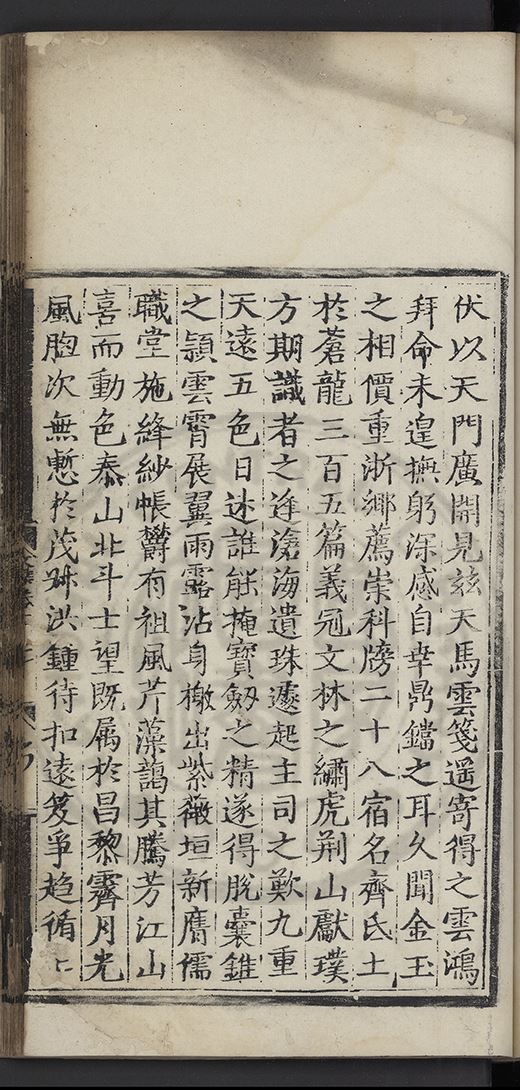 伏以天門廣開見玆天馬雲箋遥寄得之雲鴻
拜命未遑撫躬深感自幸鼎鐺之耳久聞金玉
之相價重浙鄉薦崇科牓二十八宿名齊氐土
於蒼龍三百五篇義冠文林之繡虎荆山獻璞
方期識者之逢滄海遺珠遽起主司之歎九重
天遠五色日迷誰能掩寶劒之精遂得脫囊錐
之穎雲霄展翼雨露沾身檄出紫薇垣新膺儒
職堂施絳紗帳欝有祖風芹藻藹其騰芳江山
喜而動色泰山北斗士望既属於昌黎霽月光
風胷次無慙於茂叔洪鍾待扣遠笈爭趋循